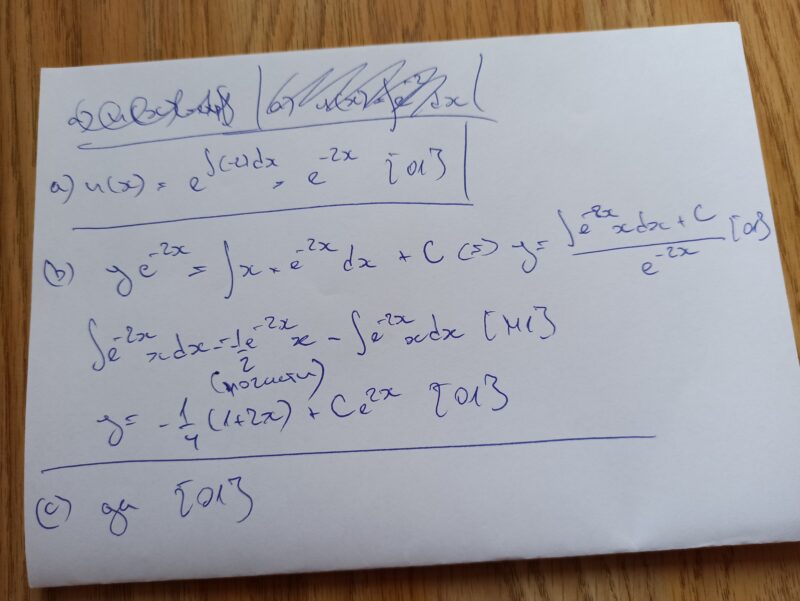 a) u(x) = e^{∫(-2)dx} = e^{-2x} [01]
(b) ye^{-2x} = ∫x · e^{-2x} dx + C (=) y = \frac{∫e^{-2x} x dx + C}{e^{-2x}} [01]
∫e^{-2x} x dx = -\frac{1}{2} e^{-2x} x - ∫e^{-2x} x dx [M1]
(по части)
y = -\frac{1}{4} (1+2x) + Ce^{2x} [01]
(c) да [01]